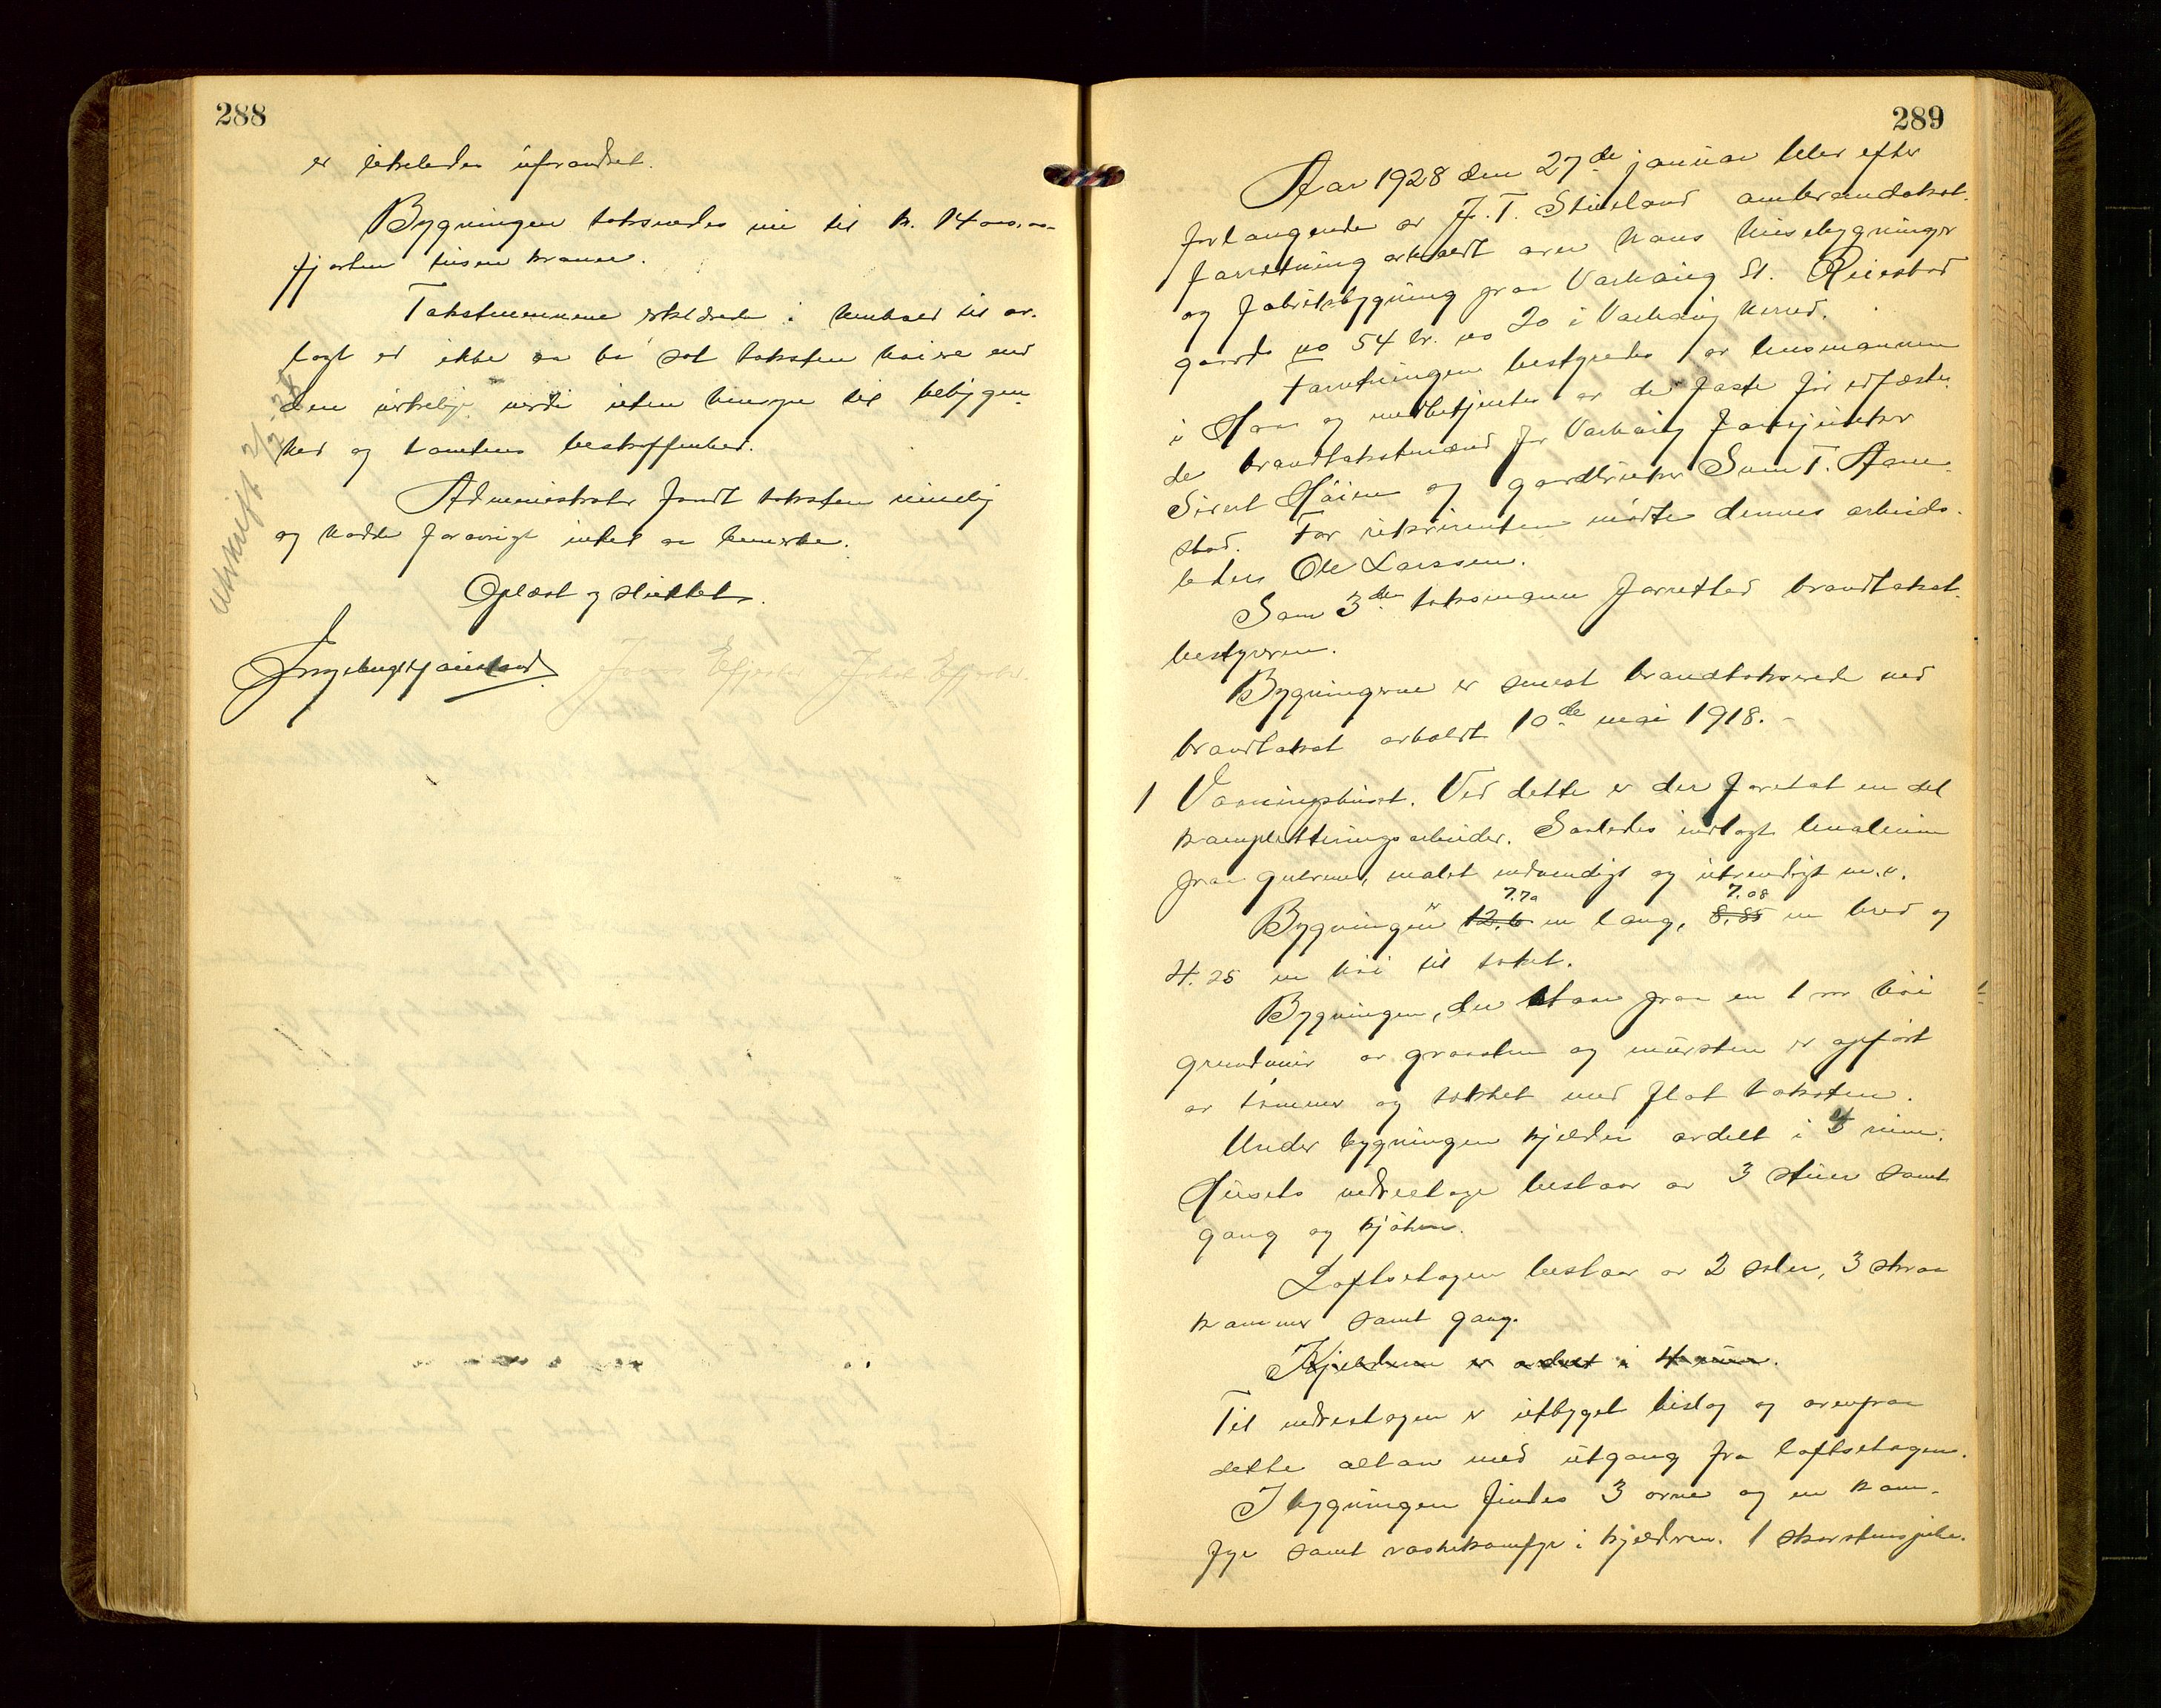 288
er likeledes uforandret.
Bygningen taksertes nu til kr. 14000,00
fjorten tusen kroner.
Takstmennene erklærede i henhold til av-
lagt ed ikke aa ha sat taksten høiere end
den virkelige verdi uten hensyn til beliggen-
het og tomtens beskaffenhed.
Administrator fandt taksten rimelig
og hadde forøvrigt intet at bemerke.
Oplæst og sluttet.
Utskrift 2/2-28
289
Aar 1928 den 27de januar blev efter
forlangende av J. T. Stueland ombrandtakst-
forretning avholdt over hans husebygninger
og fabriksbygning paa Varhaug St. Reiestad
gaards no 54 br. no 20 i Varhaug herred.
Forretningen bestyredes av lensmannen
i Haa og medbetjentes av de faste for edfæste-
de brandtakstmænd for Varhaug
Sivert Høien og gardbruker Sven T. Aane-
stad. For rekvirenten møtte dennes arbeids-
leder Ole Larssen.
Som 3die taksmann forretted brandtakst-
bestyreren.
Bygningerne er senest brandtakserede ved
brandtakst avholdt 10de mai 1918. -
1 Vaaningshuset. Ved dette er der foretat en del
kompletteringsarbeider. Saaledes indlagt linoleum
paa gulvene, malet indvendigt og utvendigt m.v.
7.70 7.08
Bygningen er 12.6 m lang, 8.85 m bred og
4.25 m høi til taket.
Bygningen, der staar paa en 1 m høi
grundmur av graasten og mursten er opført
av tømmer og tækket med flat taksten.
Under bygningen kjelder avdelt i 4 rum.
Husets nedreetage bestaar av 3 stuer samt
gang og kjøken.
Loftsetagen bestaar av 2 saler, 3 skraa
kammer samt gang.
Kjelderen er avdelt i 4 rum.
Til nedreetagen er utbygget bislag og ovenpaa
dette altan med utgang fra loftsetagen.
I bygningen findes 3 ovne og en kom-
fyr samt vaskekomfyr i kjelderen. 1 skorstenspibe.